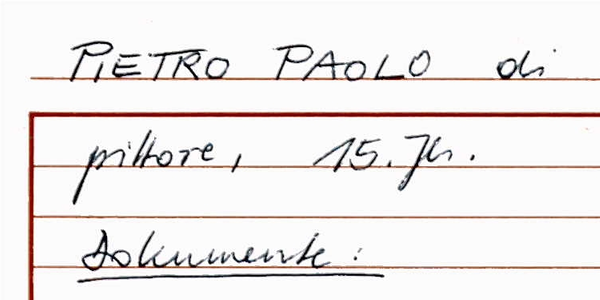 PIETRO PAOLO di
pittore, 15. Jh.
Dokumente: